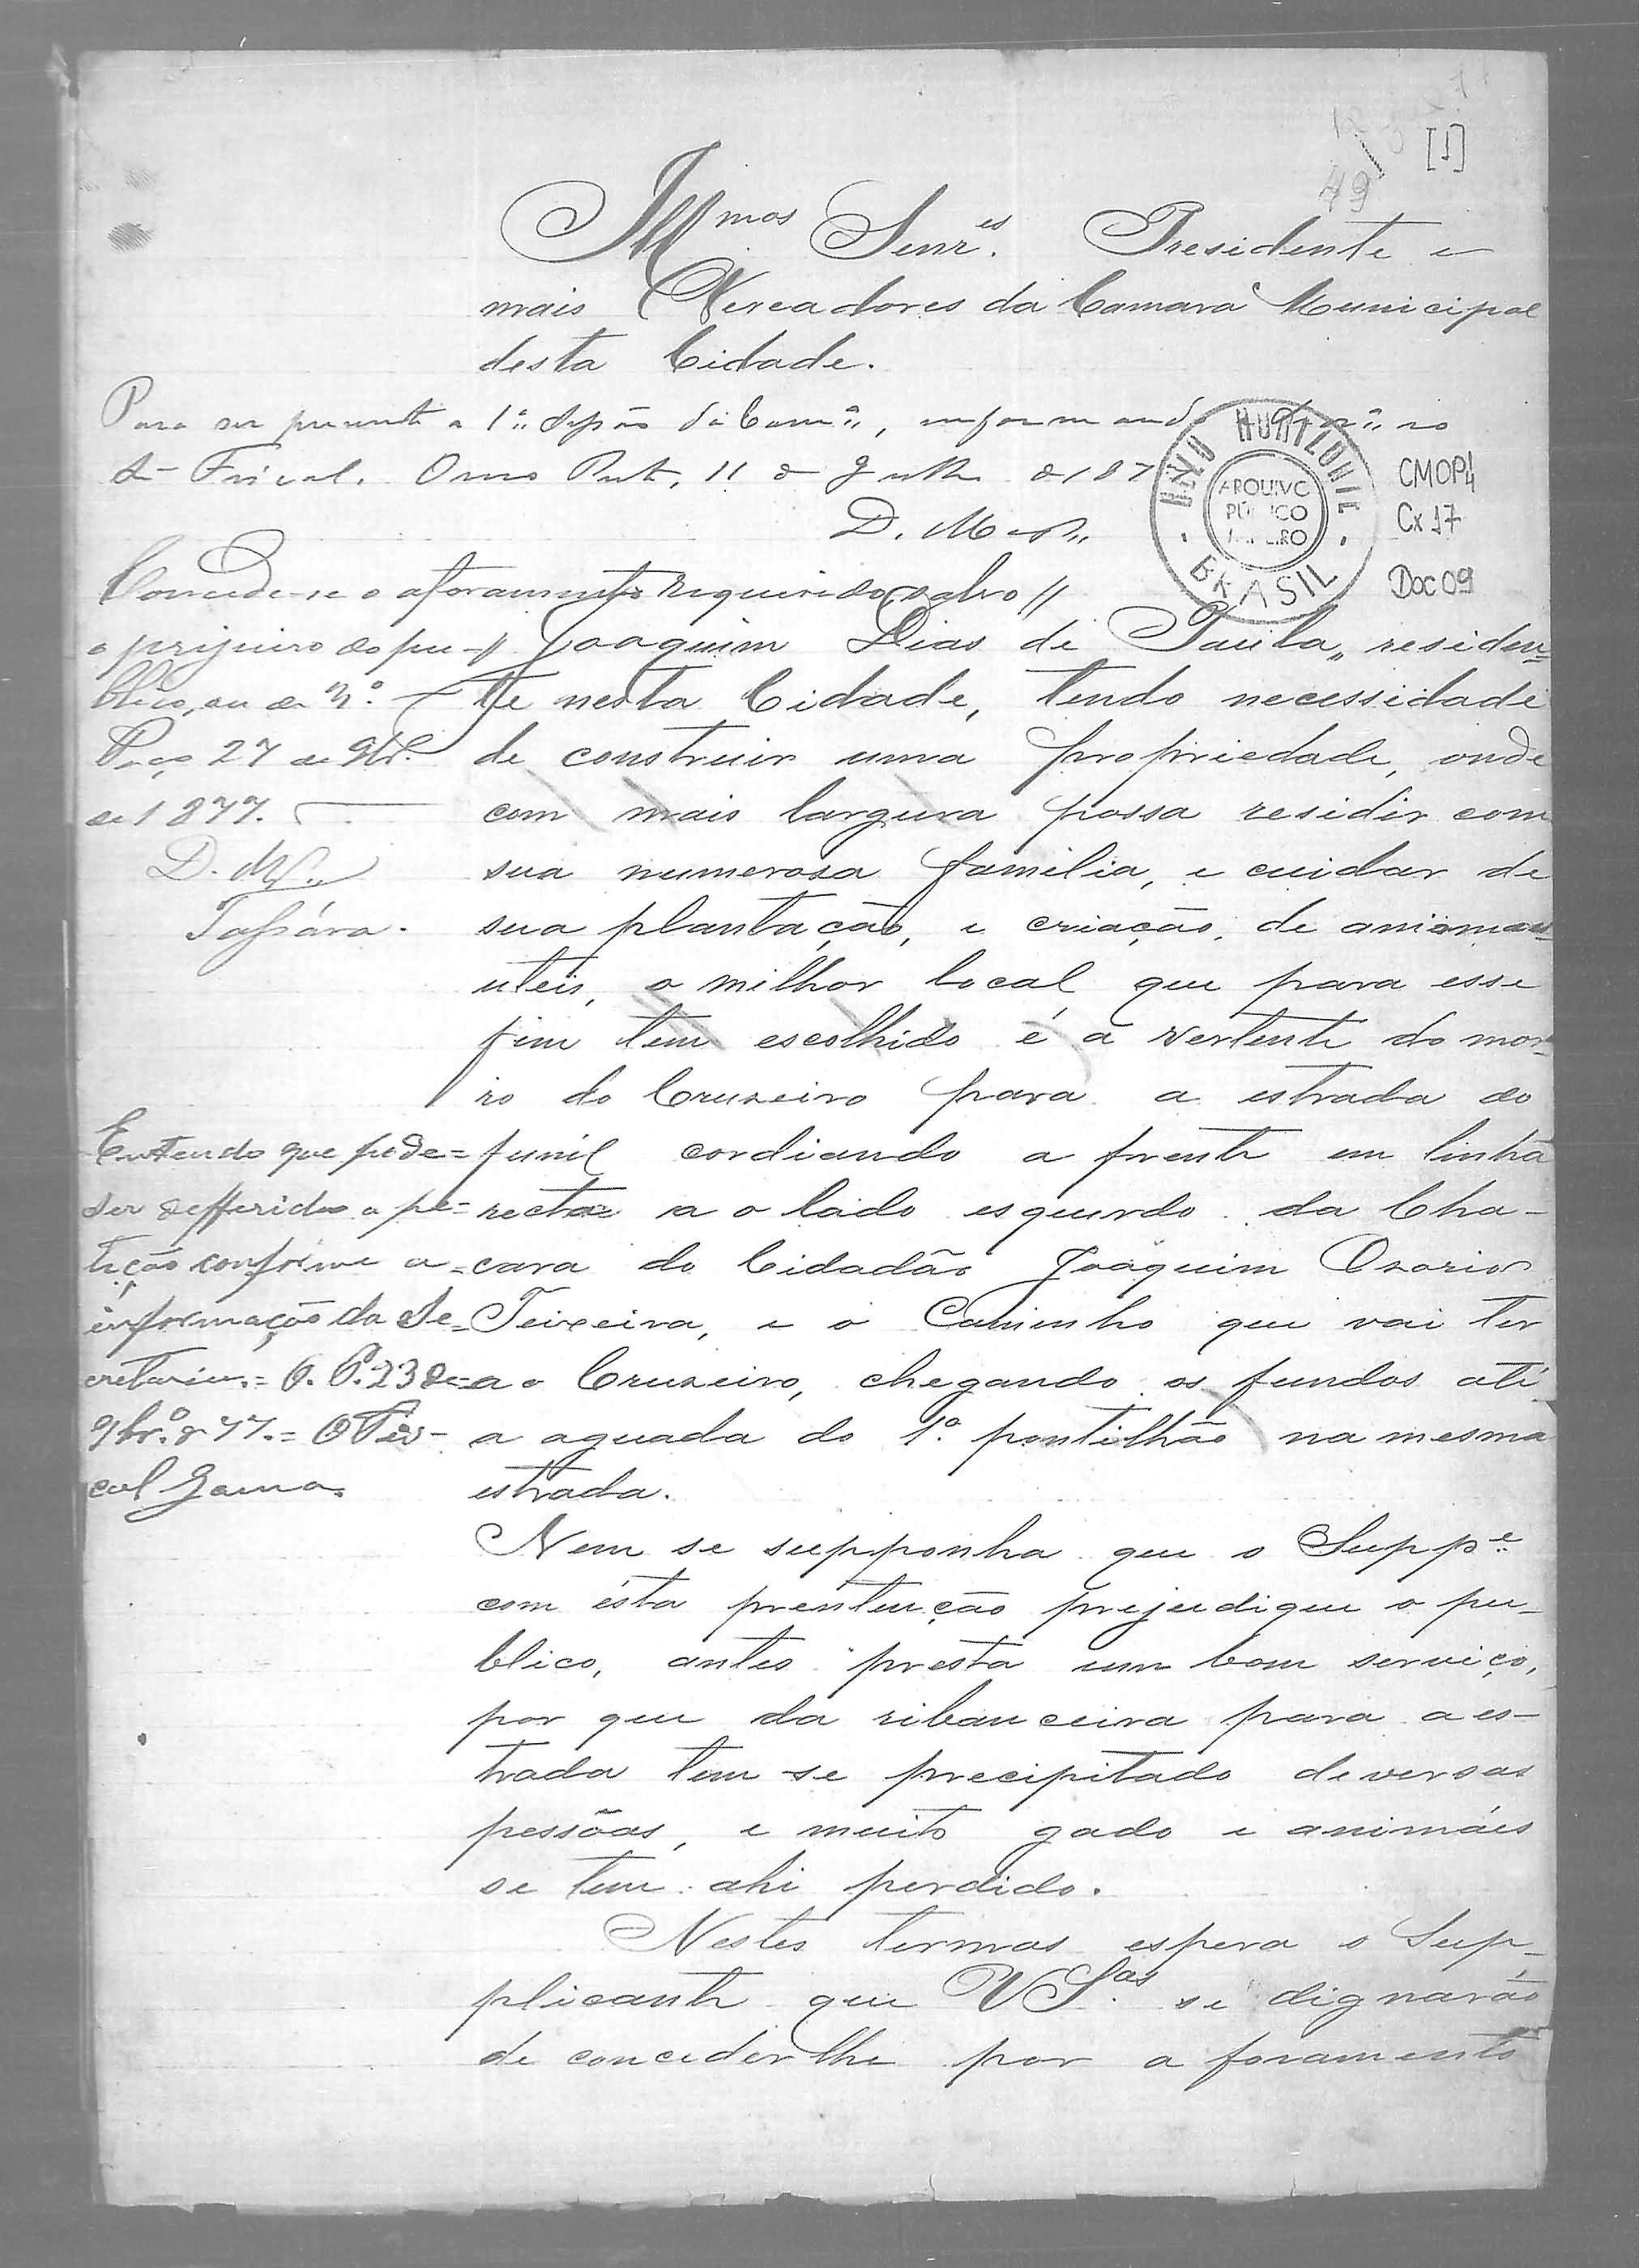 [1]
49
Illmos Senres. Presidente e
mais Vereadores da Camara Municipal
desta Cidade.
Para ser presente a 1ª Sessão da Camª, informando
Fiscal. Ouro Preto, 11 de Julho de 187
D. M
BELO HORIZONTE
ARQUIVO
PÚBLICO
MINEIRO
BRASIL
CMOP4
Cx 17
Doc 09
Concede-se o aforamento requerido, salvo
o prejuizo do pu-
blico, ou de 3º.
Paço 27 de 9br.
de 1877.
D. M.
Tassára.
Joaquim Dias de Paula, residen=
te nesta Cidade, tendo necessidade
de construir uma propriedade, onde
com mais largura possa residir com
sua numerosa familia, e cuidar de
sua plantação, e criação, de animaes
uteis, o milhor local que para esse
fim tem escolhido é a vertente do mor-
ro do Cruzeiro para a estrada do
funil cordiando a frente em linha
recta a o lado esquerdo da Cha-
cara do Cidadão Joaquim Ozorio
Teixeira, e o Caminho que vai ter
a o Cruzeiro, chegando os fundos até
a aguada do 1º. pontilhão na mesma
estrada.
Entendo que póde=
ser defferido a pe=
tição conforme a=
informação da Se=
cretaria.= O. P. 23 de=
9br.º de 77.= O Fis-
cal Gama.
Nem se supponha que o Suppe.
com ésta prentenção prejudique o pu-
blico, antes presta um bom serviço,
por que da ribanceira para a es-
trada tem-se precipitado deversas
pessôas, e muito gado e animáes
se tem ahi perdido.
Nestes termos espera o Sup-
plicante que VSas. se dignarão
de concederlhe por a foramento